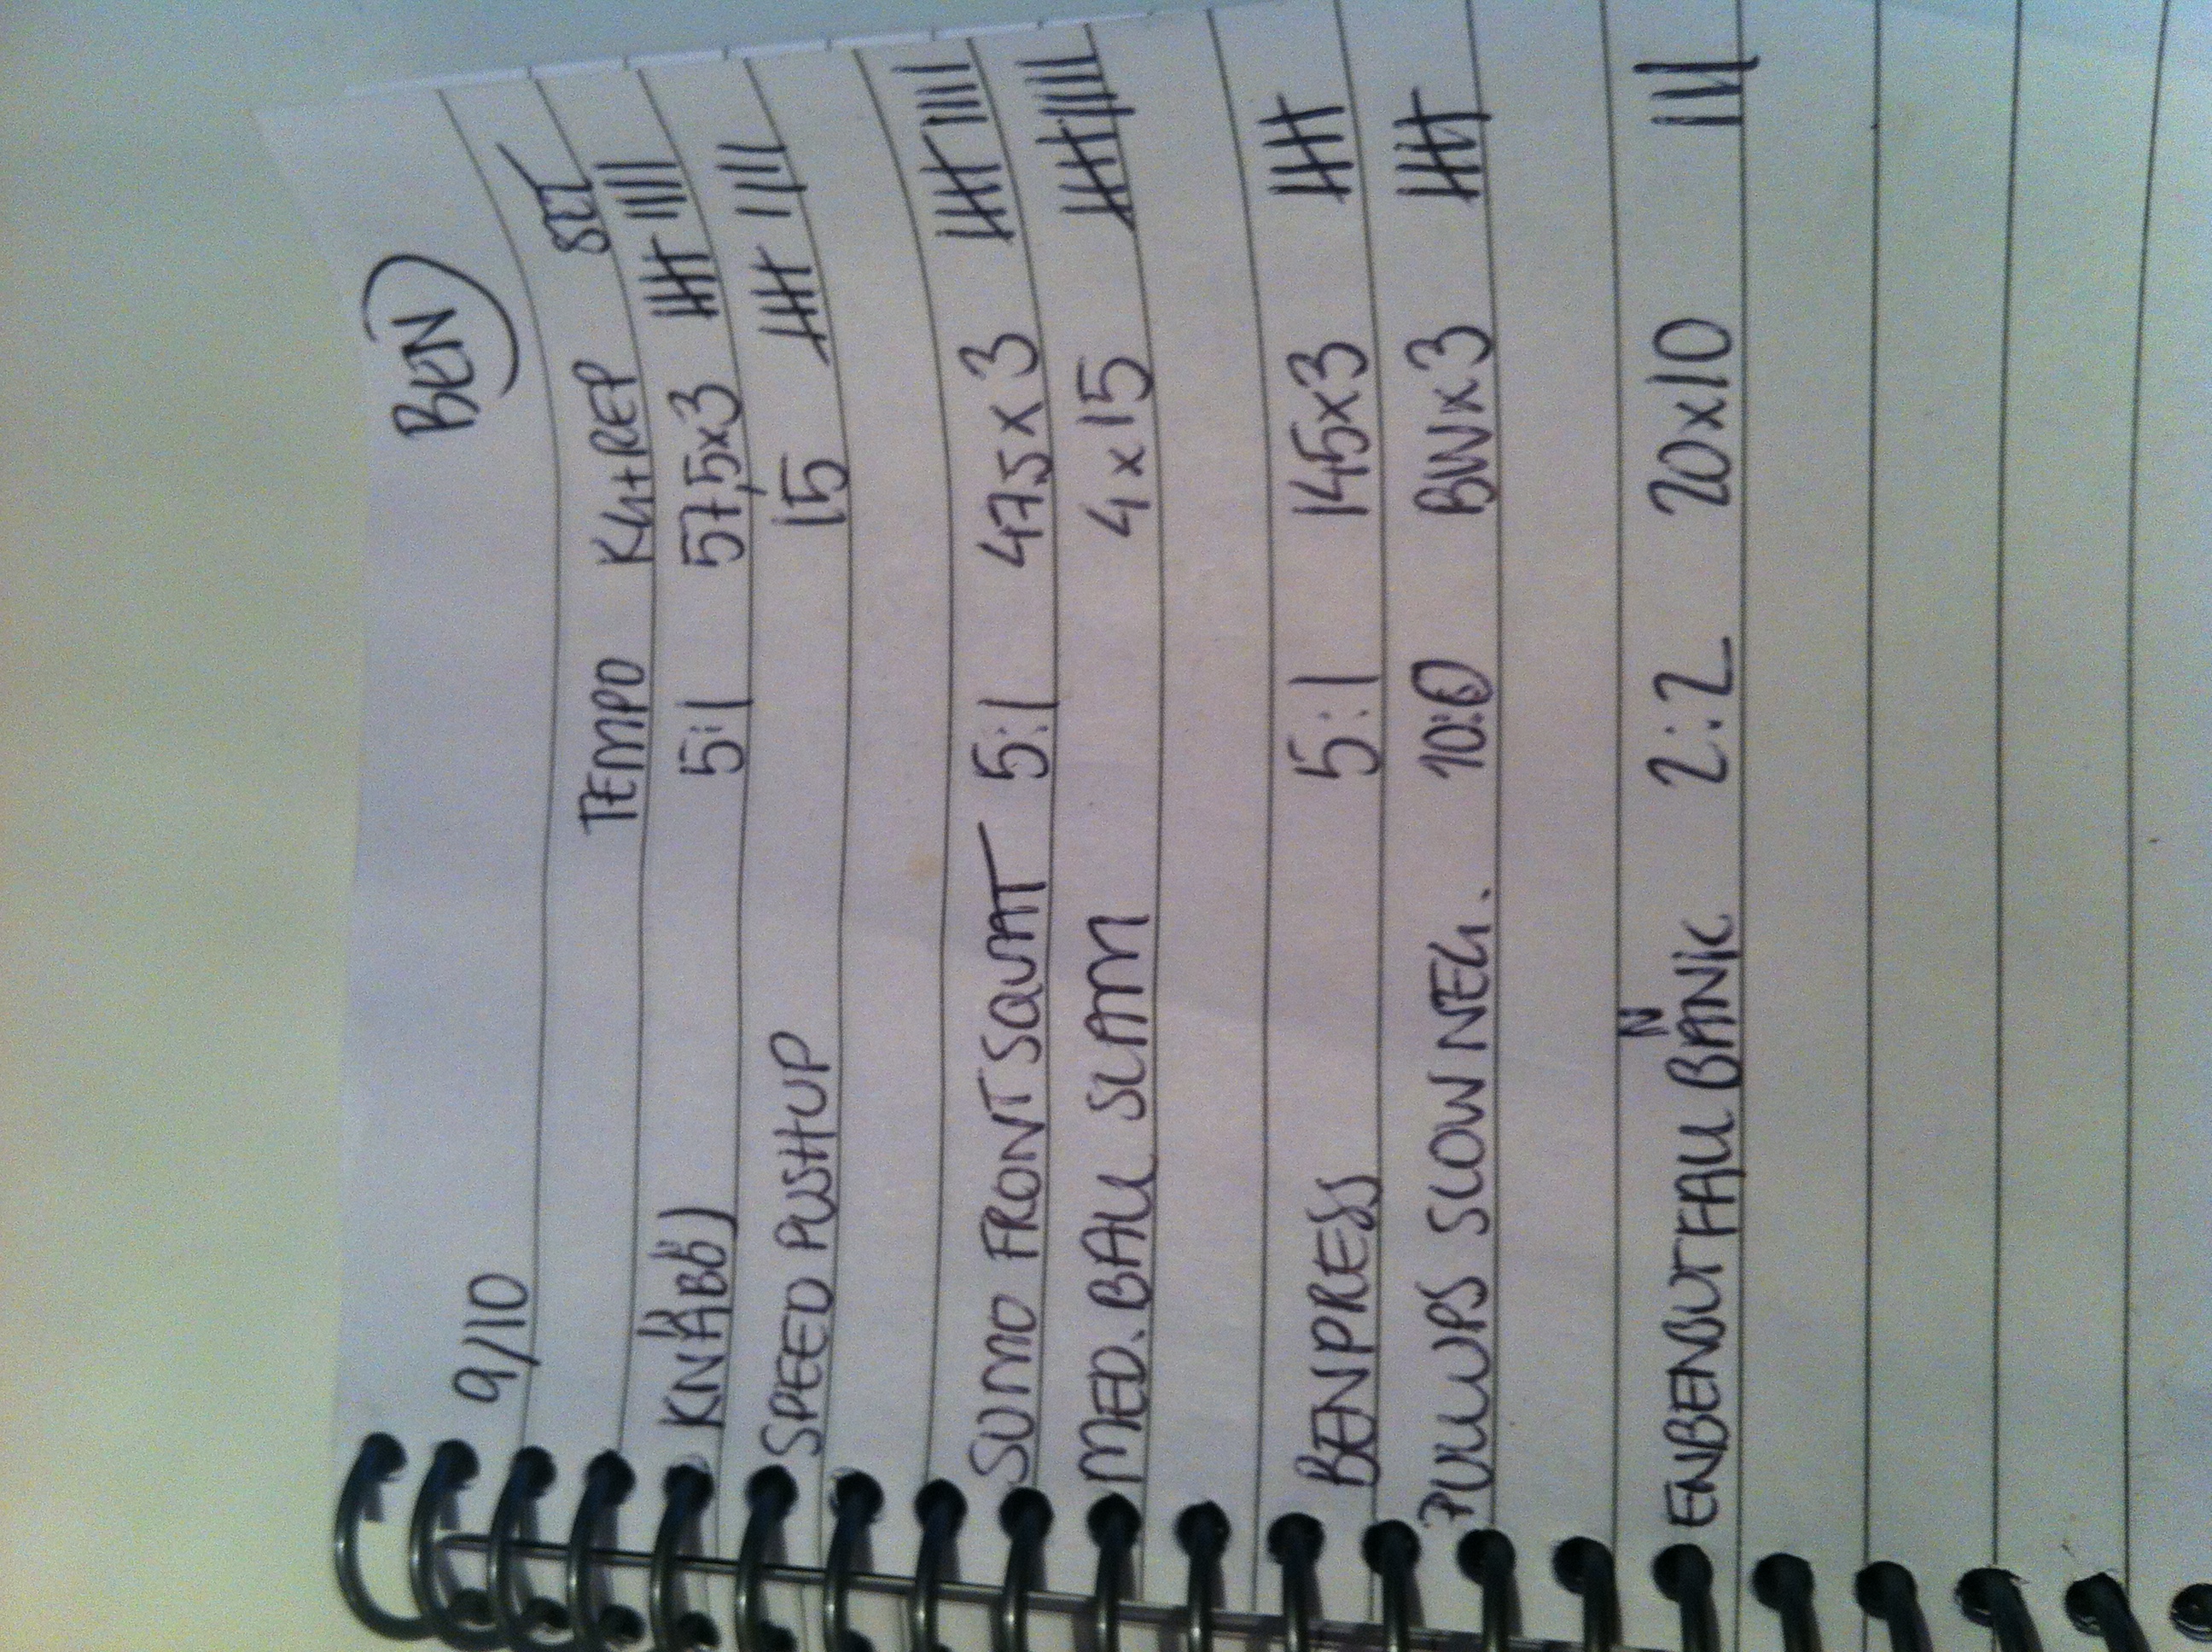 9/10 BEN
TEMPO KG+REP SET
KNÄBÖJ 5:1 57,5x3 卌 ||||
SPEED PUSHUP 15 卌 ||||
SUMO FRONTSQUAT 5:1 47,5 x 3 卌 ||||
MED. BALL SLAM 4 x 15 卌 ||||
BENPRESS 5:1 145x3 卌
PULLUPS SLOW NEG. 10:0 BW x 3 卌
ENBENBUTFALL BÄNK 2:2 20x10 |||